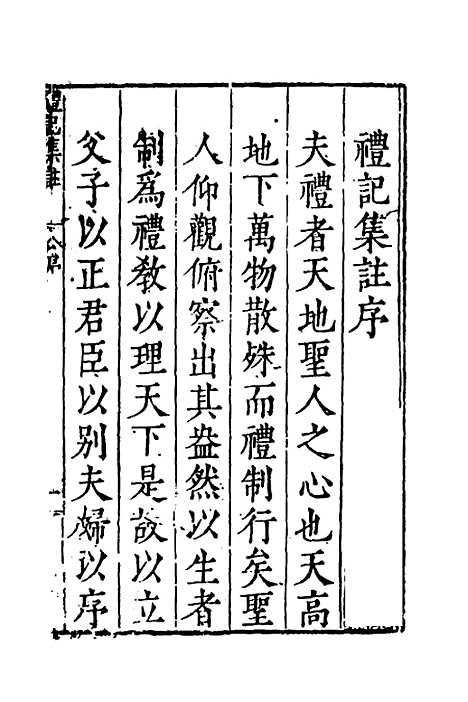 禮記集註序
夫禮者天地聖人之心也天高
地下萬物散殊而禮制行矣聖
人仰觀俯察出其盎然以生者
制為禮敎以理天下是故以立
父子以正君臣以别夫婦以序
禮記集註